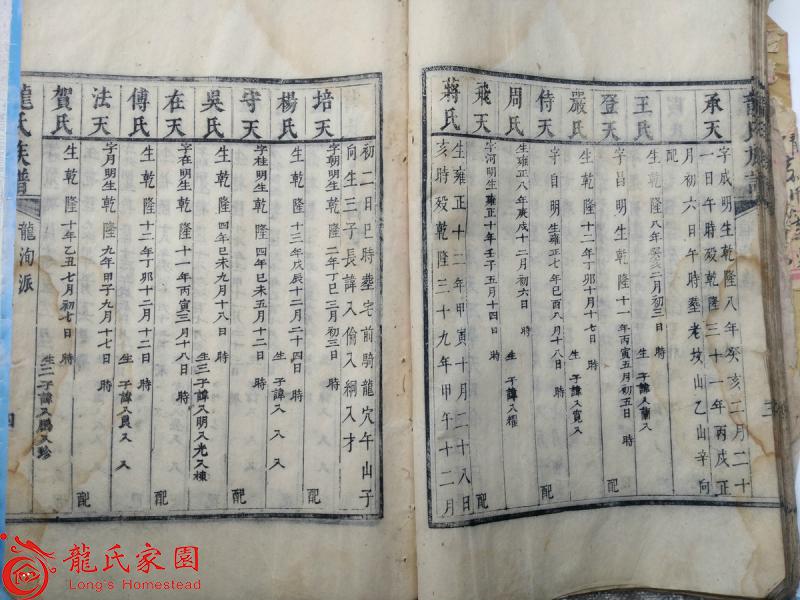 龍氏族譜
承天 字成明生乾隆八年癸亥二月二十
一日午時殁乾隆三十一年丙戌正
月初六日午時葬老坟山乙山辛向
配
王氏 生乾隆八年癸亥二月初三日 時 生 子諱入蘭入
登天 字昌明生乾隆十一年丙寅五月初五日 時 配
嚴氏 生乾隆十二年丁卯十月十七日 時 生 子諱入寬入
侍天 字自明生雍正七年己酉八月十八日 時 配
周氏 生雍正八年庚戌十二月初六日 時 生 子諱入耀
飛天 字河明生雍正十年壬子五月十四日 時 配
蔣氏 生雍正十二年甲寅十月二十八日
亥時殁乾隆三十九年甲午十二月
初二日巳時葬宅前騎龍穴午山子
向生三子長諱入倫入綱入才
培天 字朝明生乾隆二年丁巳三月初三日 時 配
楊氏 生乾隆十三年戊辰十二月二十四日 時 生 子諱入 入 入
守天 字桂明生乾隆四年己未五月十二日 時 配
吳氏 生乾隆四年己未九月十八日 時 生三子諱入明入光入棟
在天 字在明生乾隆十一年丙寅三月十八日 時 配
傅氏 生乾隆十二年丁卯十二月十二日 時 生 子諱入良入 入
法天 字月明生乾隆九年甲子九月十七日 時 配
賀氏 生乾隆十年乙丑七月初七日 時 生二子諱入鵬入珍
龍氏族譜 龍洵派 四
龍氏家園
Long's Homestead